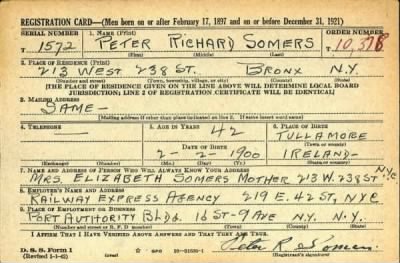 REGISTRATION CARD—(Men born on or after February 17, 1897 and on or before December 31, 1921)
SERIAL NUMBER 1. NAME (Print) ORDER NUMBER
T 1572 PETER RICHARD SOMERS 10,378
(First) (Middle) (Last)
2. PLACE OF RESIDENCE (Print)
213 WEST 238 ST. BRONX N.Y.
(Number and street) (Town, township, village, or city) (County) (State)
[THE PLACE OF RESIDENCE GIVEN ON THE LINE ABOVE WILL DETERMINE LOCAL BOARD
JURISDICTION; LINE 2 OF REGISTRATION CERTIFICATE WILL BE IDENTICAL]
3. MAILING ADDRESS
SAME—
[Mailing address if other than place indicated on line 2. If same insert word same]
4. TELEPHONE 5. AGE IN YEARS 6. PLACE OF BIRTH
— 42 TULLAMORE
DATE OF BIRTH (Town or county)
2-2-1900 IRELAND-
(Exchange) (Number) (Mo.) (Day) (Yr.) (State or country)
7. NAME AND ADDRESS OF PERSON WHO WILL ALWAYS KNOW YOUR ADDRESS N.Y.C
MRS. ELIZABETH SOMERS MOTHER 213 W. 238 ST
8. EMPLOYER'S NAME AND ADDRESS
RAILWAY EXPRESS AGENCY 219 E. 42 ST, NYC
9. PLACE OF EMPLOYMENT OR BUSINESS
PORT AUTHORITY BLDG. 16 ST-9 AVE N.Y. N.Y.
(Number and street or R. F. D. number) (Town) (County) (State)
I AFFIRM THAT I HAVE VERIFIED ABOVE ANSWERS AND THAT THEY ARE TRUE.
D. S. S. Form 1
(Revised 1-1-42) Peter R Somers
(Registrant's signature)